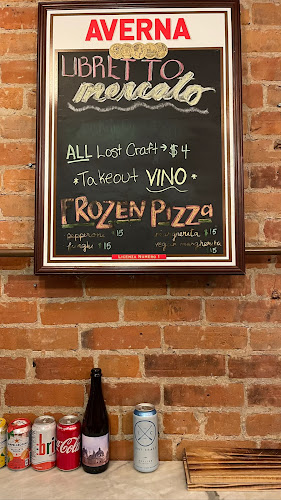 AVERNA
LIBRETTO
mercato
ALL Lost Craft → $4
*Takeout VINO*
FROZEN PIZZa
pepperoni $15 margherita $15
funghi $15 vegan margherita
$15
LICENZA NUMERO 1
bri
Coca-Cola